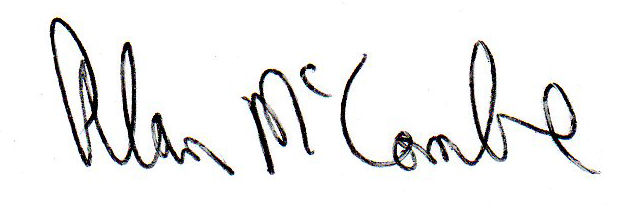 Alan McCombe